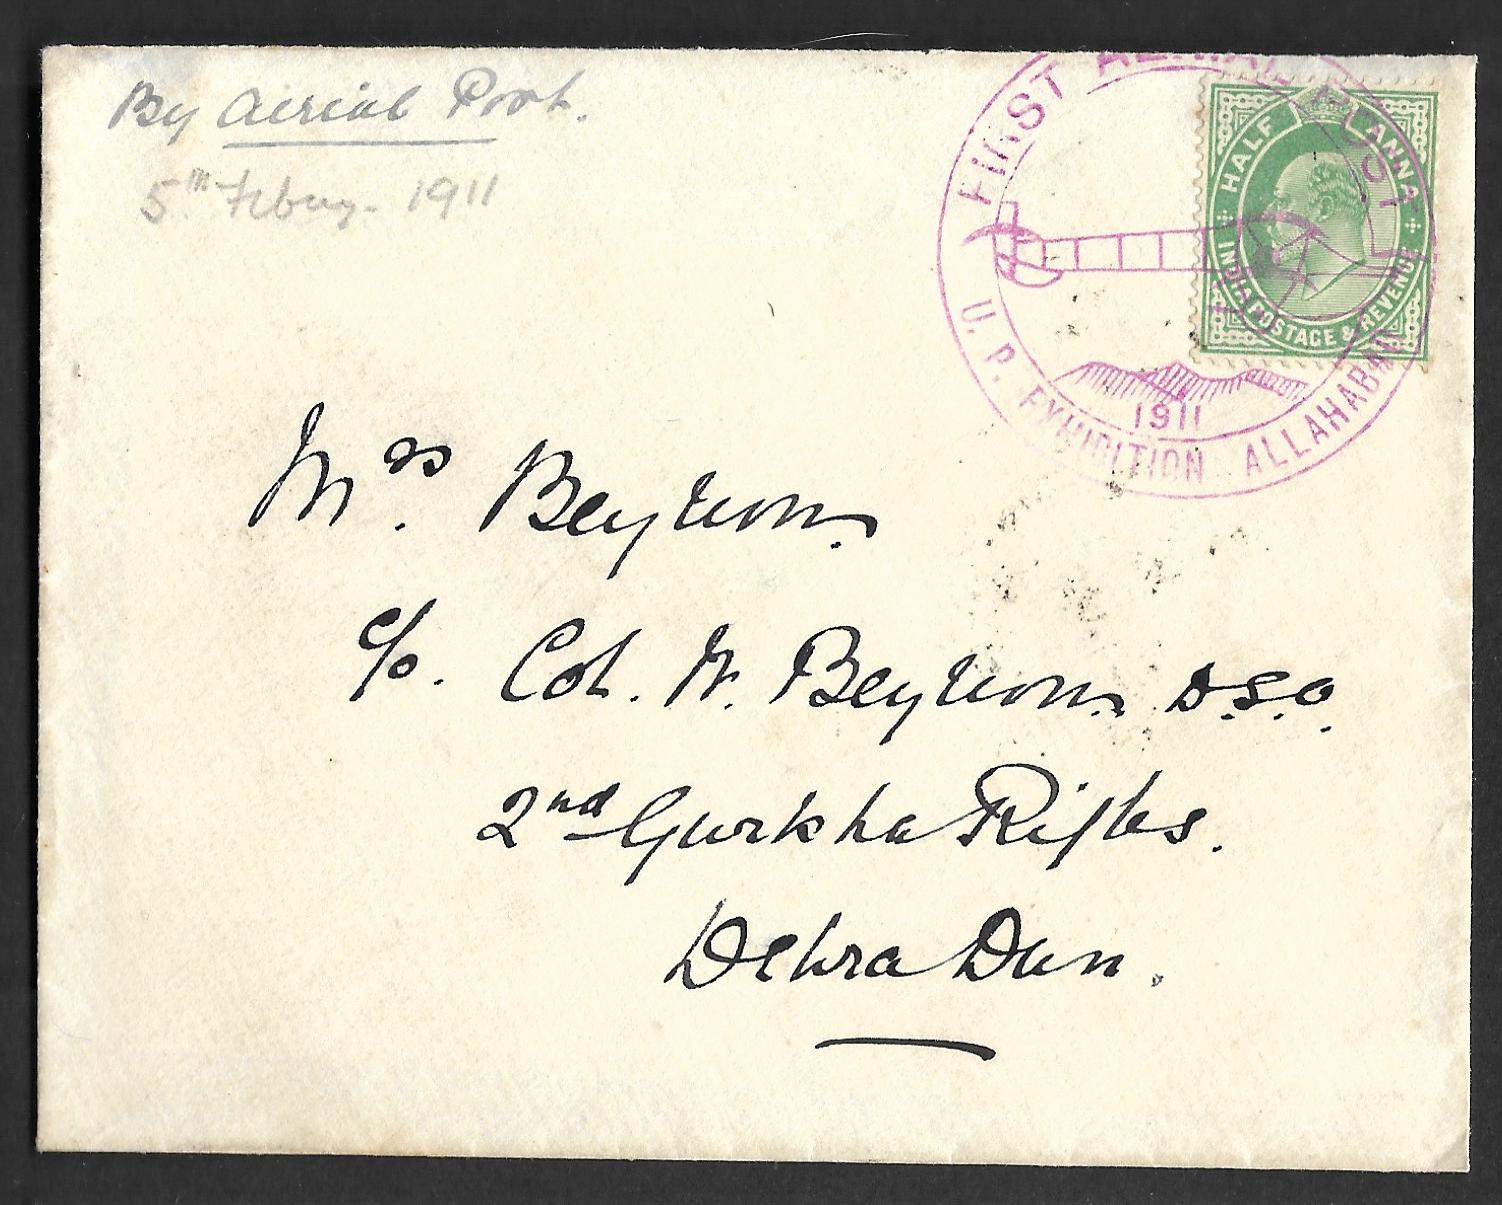 By Aerial Post.
5th Febury. 1911
FIRST AERIAL POST
U. P. EXHIBITION ALLAHABAD
1911
HALF ANNA
INDIA POSTAGE & REVENUE
Mrs. Beynon.
c/o. Col. W. Beynon. D.S.O.
2nd Gurkha Rifles.
Dehra Dun.